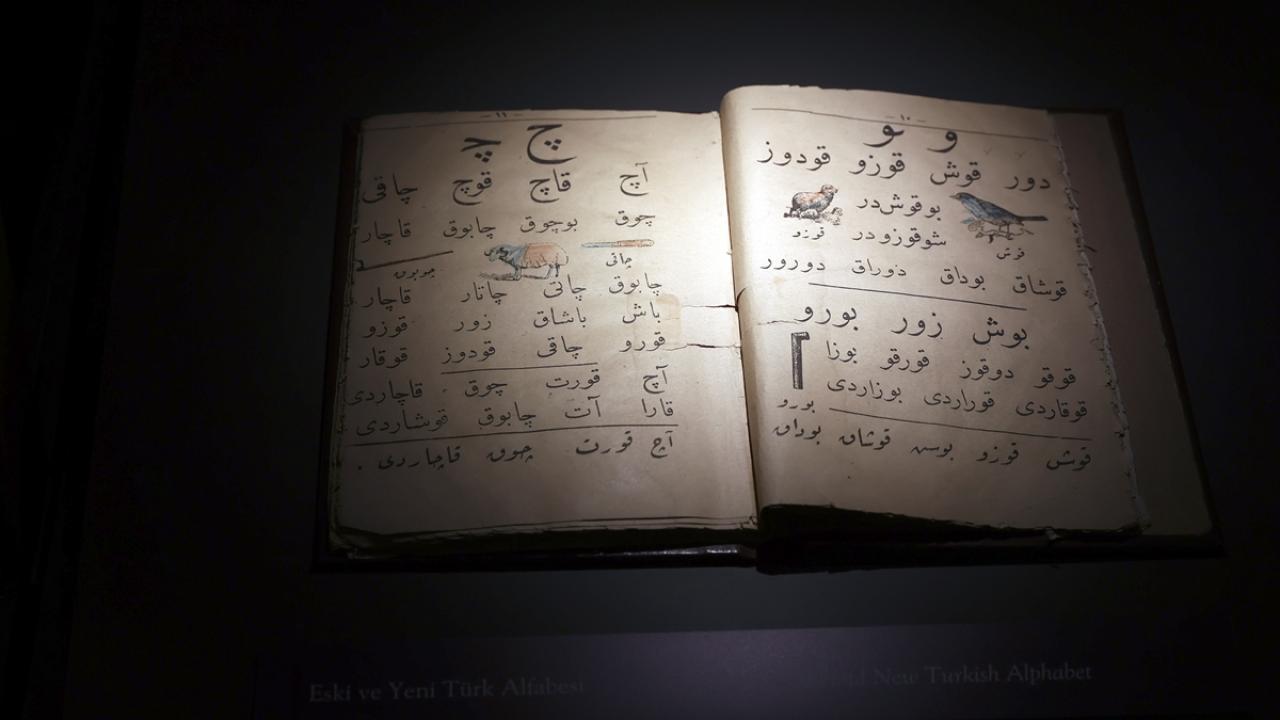 - ١٠ -
و و
دور قوش قوزو قودوز
بوقوش‌در
شوقوزودر
قوش
قوزو
قوشاق بوداق دوراق دورور
بوش زور بورو
قوقو دوقوز قورقو بوزا
قوقاردی قوراردی بوزاردی
بورو
قوش قوزو بوسس قوشاق بوداق
- ١١ -
چ چ
آچ قاچ قوچ چاقی
چوق بوچوق چابوق قاچار
چاقی
چوبوق
چابوق چاتی چاتار قاچار
باش باشاق زور قوزو
قورو چاقی قودوز قوقار
آچ قورت چوق قاچاردی
قارا آت چابوق قوشاردی
آچ قورت چوق قاچاردی .
Eski ve Yeni Türk Alfabesi
New Turkish Alphabet